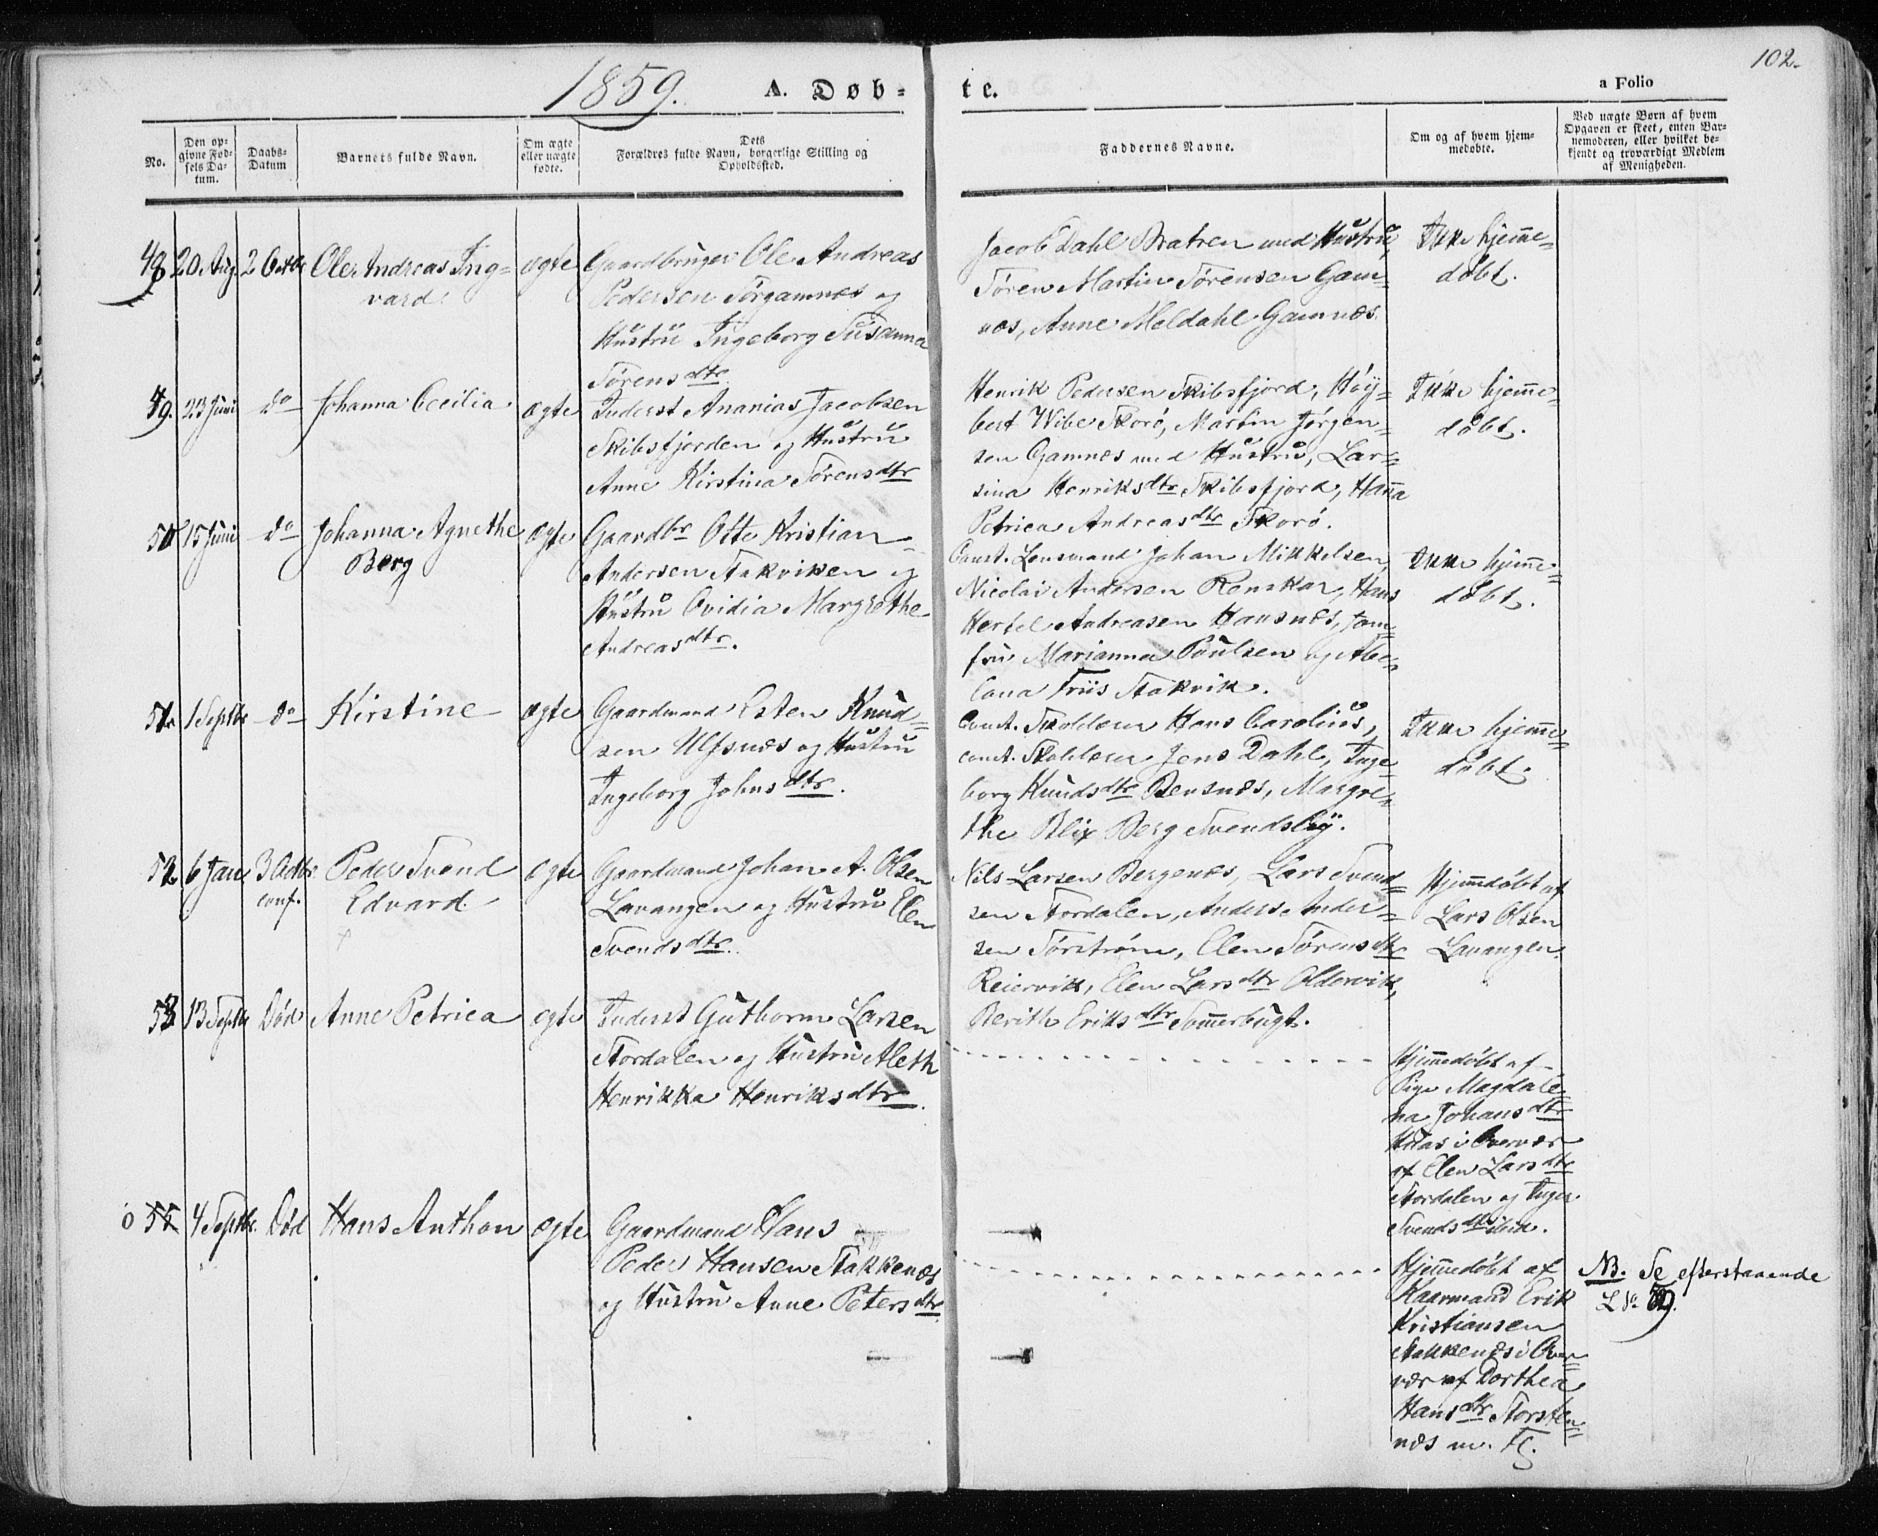 1859.
A. Døb-
te.
a Folio
102.
No.
Den op-
givne Fød-
sels Da-
tum.
Daabs-
Datum
Barnets fulde Navn.
Om ægte
eller uægte
fødte.
Dets
Forældres fulde Navn, borgerlige Stilling og
Opholdssted.
Faddernes Navne.
Om og af hvem hjem-
medøbte.
Ved uægte Børn af hvem
Opgaven er skeet, enten Bar-
nemoderen, eller hvilket be-
kjendt og troværdigt Medlem
af Menigheden.
48. 20 Aug 2 Octbr Ole Andreas Ing-
vard.
ægte
Gaardbruger Ole Andreas
Pedersen Sørgamnæs og
Hustru Ingeborg Susanna
Sørensdtr
Jacob Dahl Bratren med Hustru,
Søren Martin Sørensen Gam-
næs, Anne Meldahl Gamnæs.
Ikke hjemme-
døbt.
49. 23 Juni do Johanna Cecilia.
ægte
Inderst Ananias Jacobsen
Skibsfjorden og Hustru
Anne Kirstina Sørensdtr
Henrik Pedersen Skibsfjord, Høy-
bert Wibe Skorø, Martin Jørgen-
sen Gamnæs med Hustru, Lar-
sina Henriksdtr Skibsfjord, Hanna
Petrica Andreasdtr Skorø.
Ikke hjemme-
døbt.
50 15 Juni do Johanna Agnethe
Berg
ægte
Gaardbr Otte Kristian
Andersen Stakviken og
Hustru Ovidia Margrethe
Andreasdtr.
Const. Lensmand Johan Mikkelsen,
Nicolai Andersen Renskar, Hans
Hertel Andreasen Hansnæs, Jom-
fru Marianna Paulsen og Abe-
lona Friis Stakvik.
Ikke hjemme-
døbt.
51. 1 Septbr do Kirstine
ægte
Gaardmand Esten Knud-
sen Ulfsnæs og Hustru
Ingeborg Johnsdtr.
Const. Skolelærer Hans Carolius,
const. Skolelærer Jens Dahl, Inge-
borg Knudsdtr Bensnæs, Margre-
the Blix Berg Svendsby.
Ikke hjemme-
døbt.
52. 6 Jan 3 Octbr
conf.
Peder Svend
Edvard.
ægte
Gaardmand Johan A. Olsen
Lavangen og Hustru Elen
Svendsdtr.
Nils Larsen Bergenæs, Lars Svend-
sen Stordalen, Anders Ander-
sen Sørstrøm, Elen Sørensdtr
Reiervik, Elen Larsdtr Oldervik,
Berith Eriksdtr Sommerbugt.
Hjemmedøbt af
Lars Olsen
Lavangen.
53 13 Septbr Død Anne Petrica
ægte
Inderst Guthorm Larsen
Stordalen og Hustru Aleth
Henrikka Henriksdtr.
Hjemmedøbt af
Pige Magdale-
na Johansdtr
i Overvær
af Elen Larsdtr
Stordalen og Inger
Svendsdtr ibid.
0 55 4 Septbr. Død Hans Anthon
ægte
Gaardmand Hans
Peder Hansen Stakkenæs
og Hustru Anne Petersdtr.
Hjemmedøbt af
Kaarmand Erik
Kristiansen
Stakkenæs i Over-
vær af Dorthea
Hansdtr Storsten-
næs m. Fl.
NB. Se efterstaaende
L No 59.